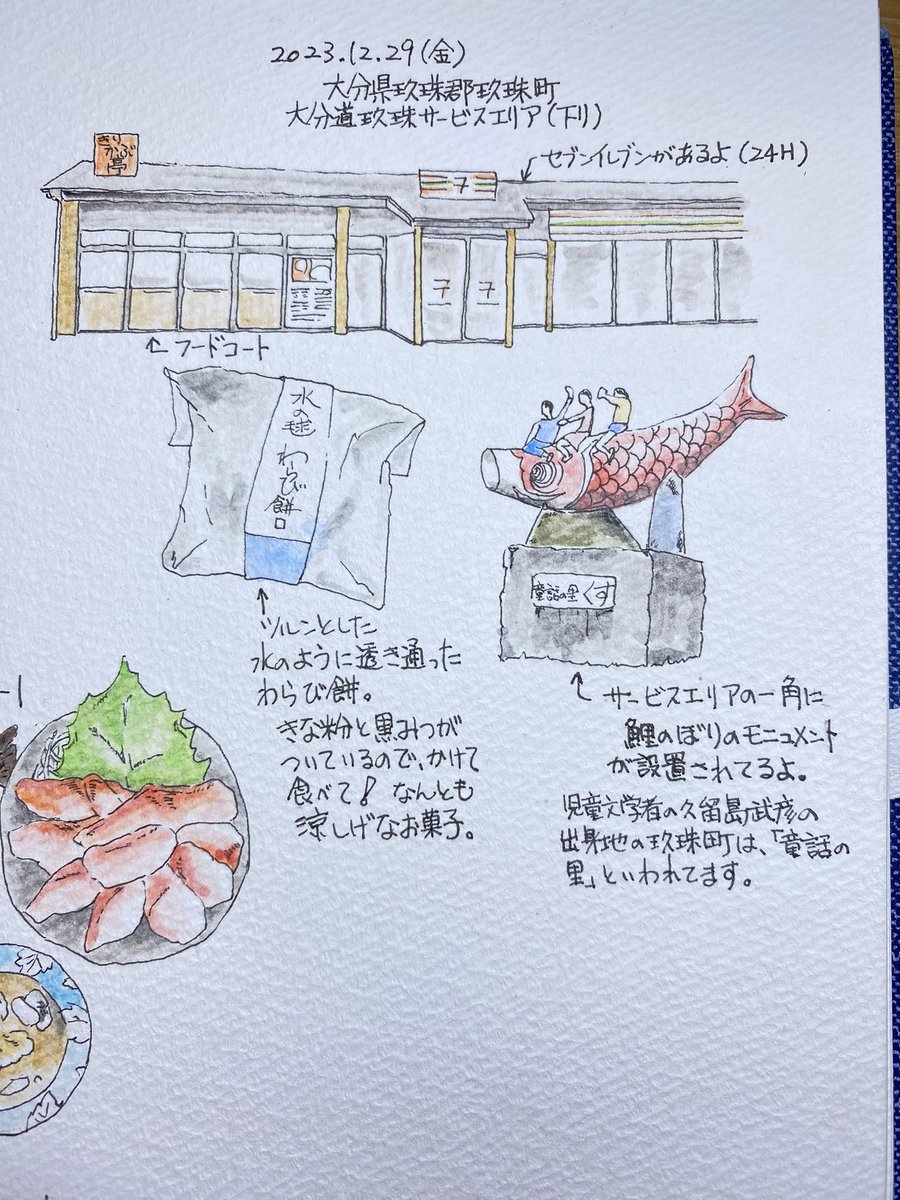 2023.12.29(金)
大分県玖珠郡玖珠町
大分道玖珠サービスエリア(下り)
きり
かぶ
亭
7
セブンイレブンがあるよ(24H)
7 7
↑フードコート
水の毬 わらび餅
童話の里くす
ツルンとした
水のように透き通った
わらび餅。
きな粉と黒みつが
ついているので、かけて
食べて! なんとも
涼しげなお菓子。
サービスエリアの一角に
鯉のぼりのモニュメント
が設置されてるよ。
児童文学者の久留島武彦の
出身地の玖珠町は、「童話の
里」といわれてます。